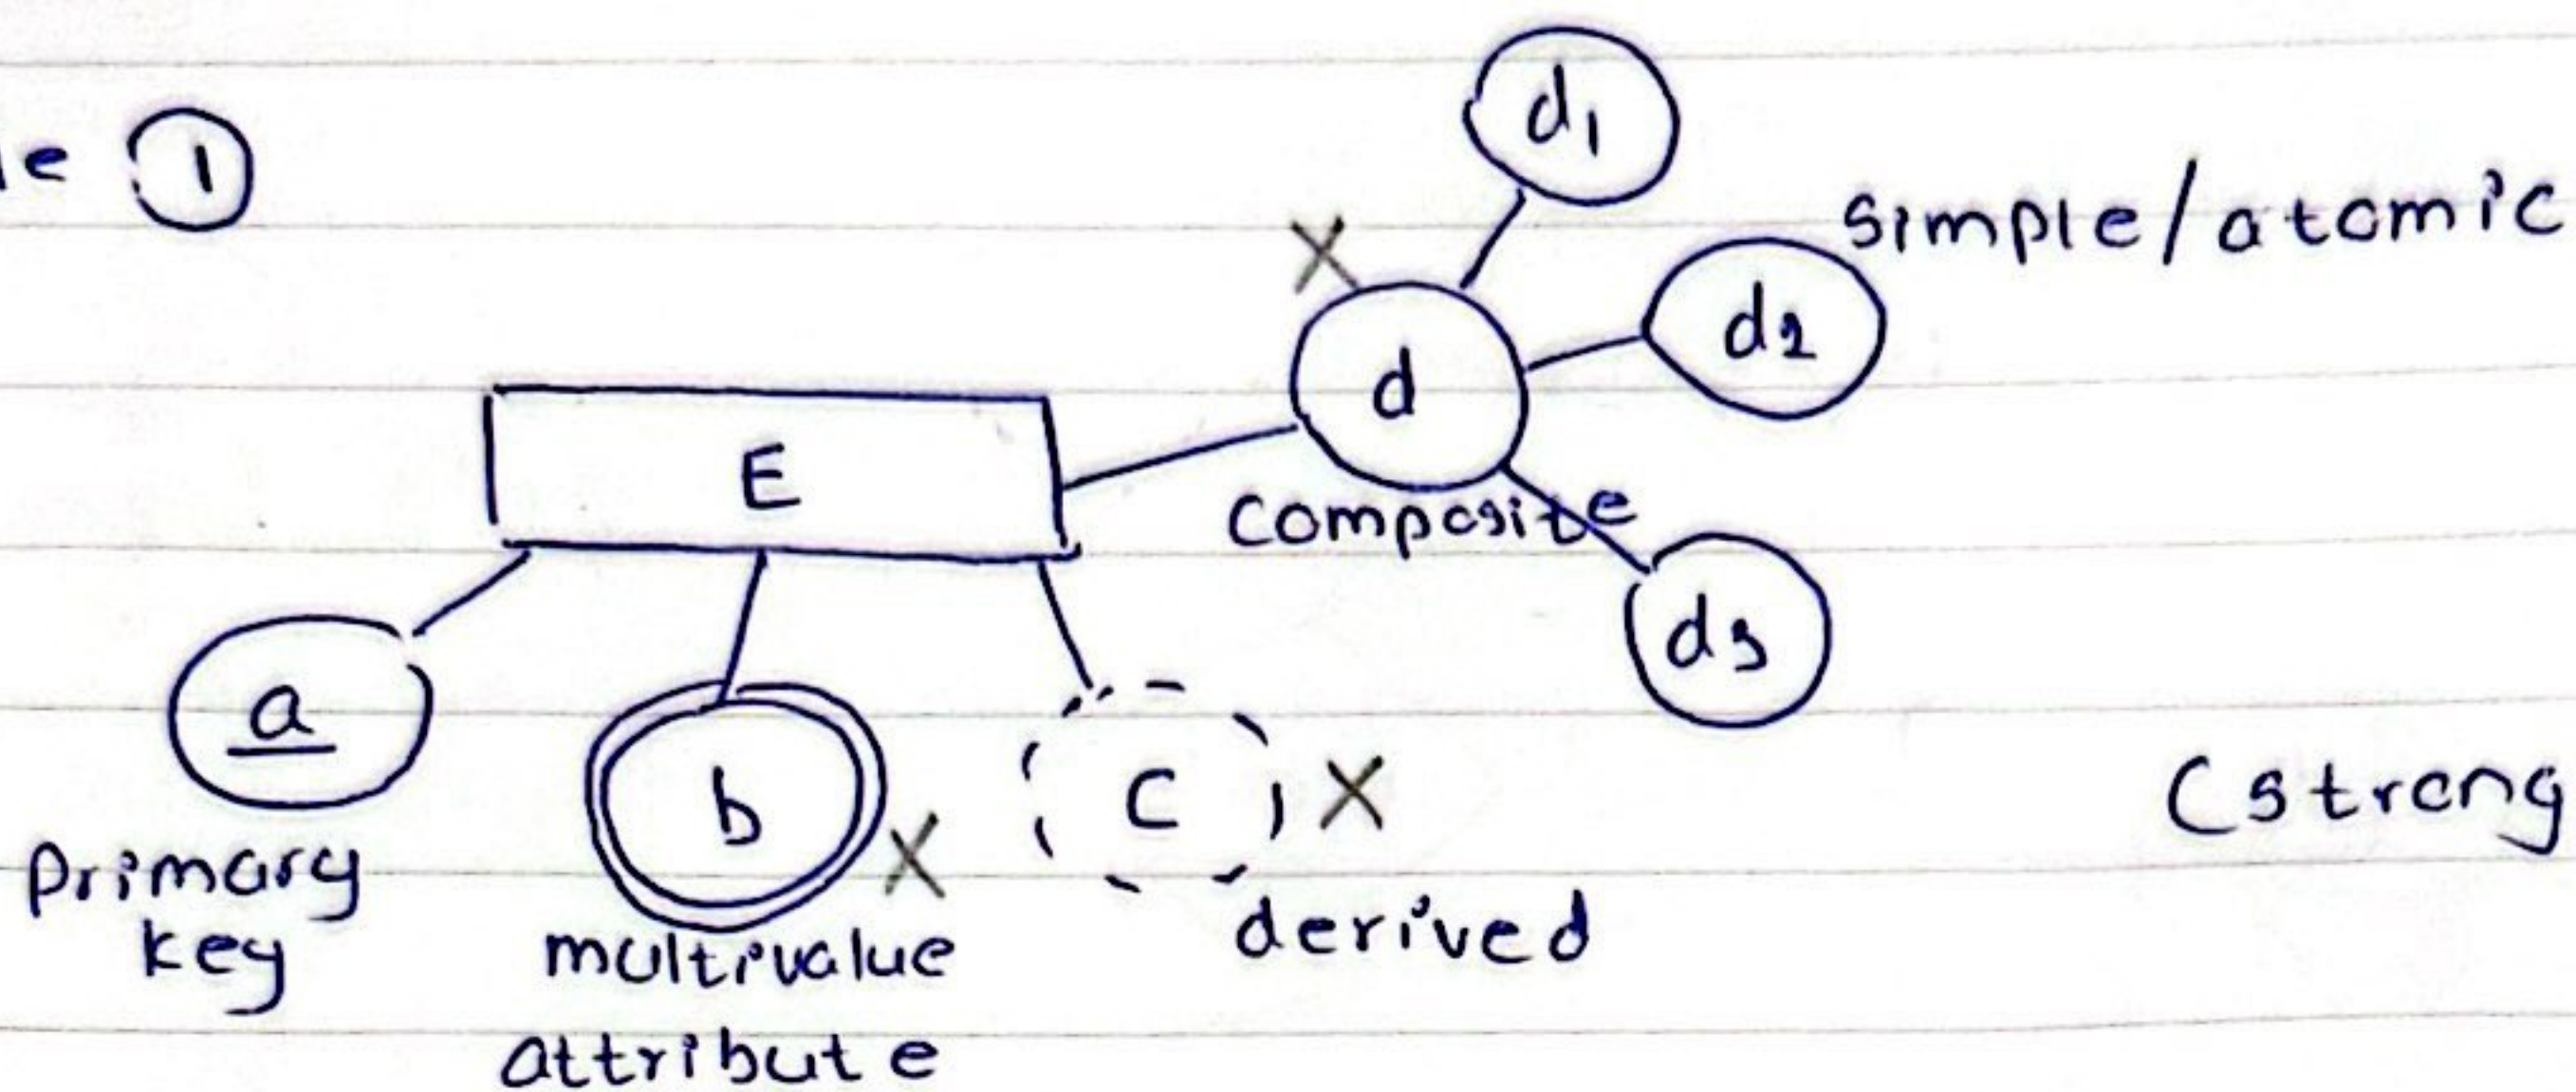 le ①
d1
simple/atomic
X
d2
d
E
composite
d3
a
b
C
X
X
(strong
primary
key
multivalue
attribute
derived